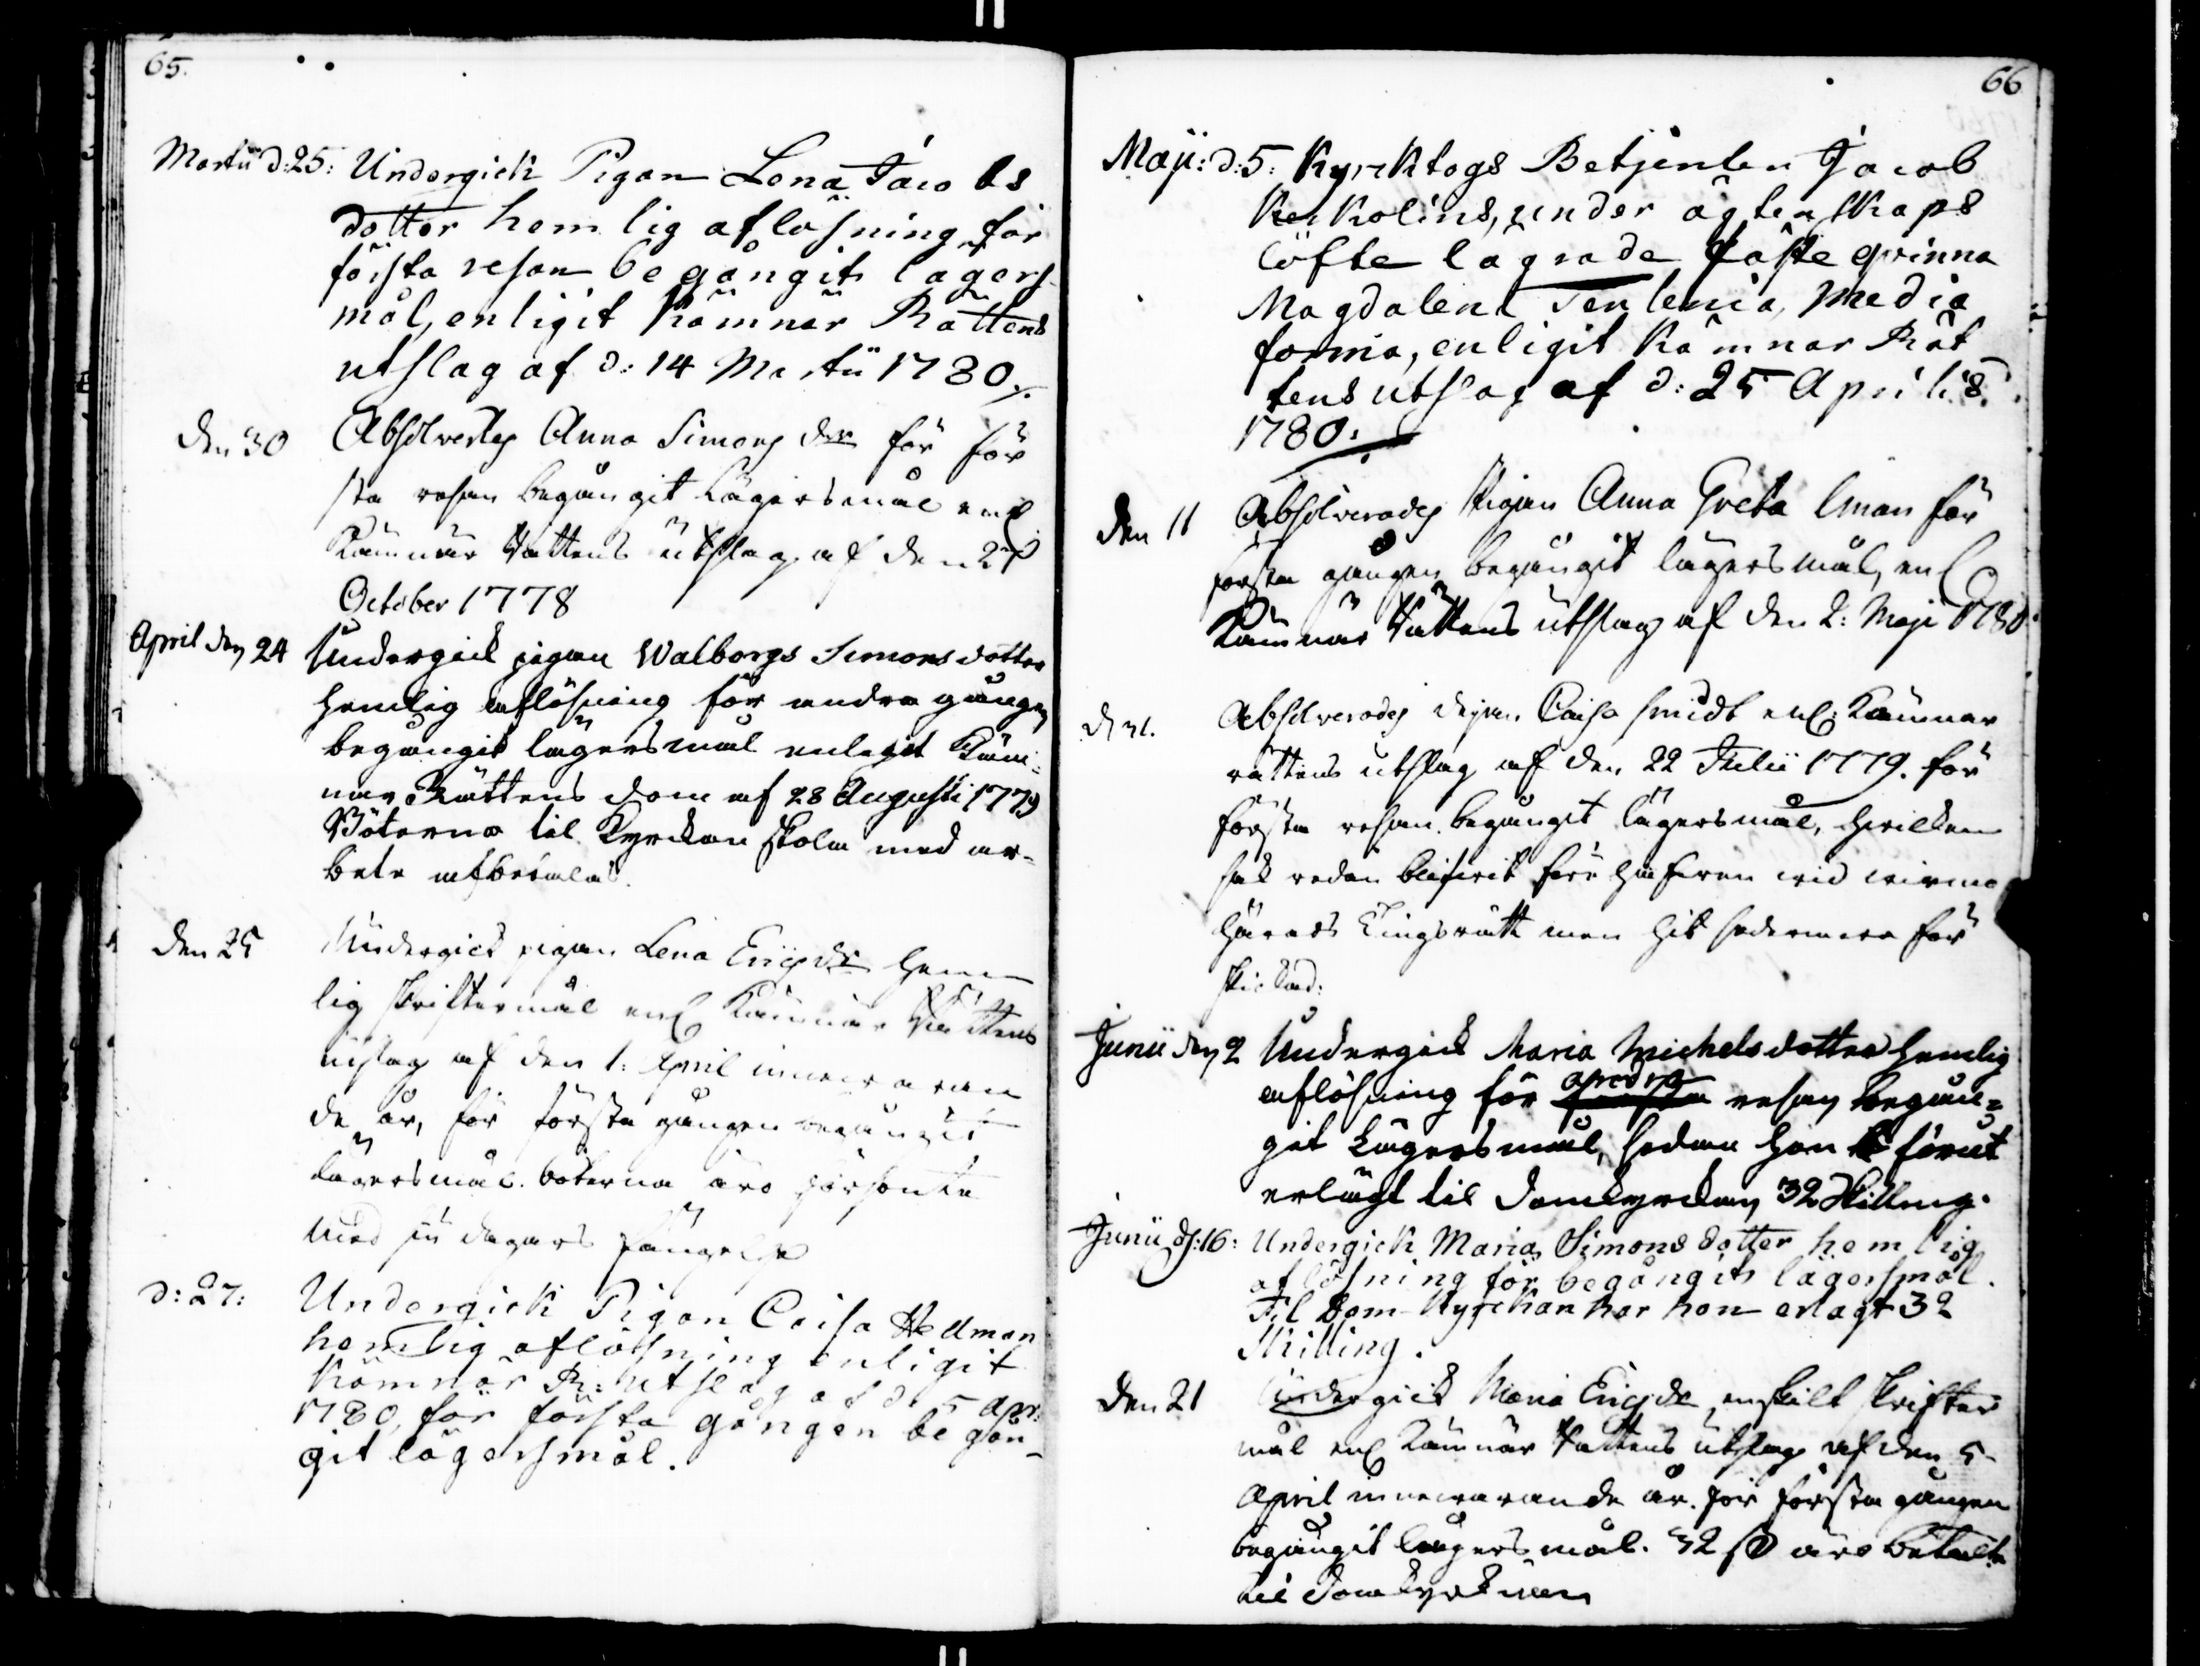 65.
Martii d: 25: Undergick Pigan Lena Jacobs
dotter hemlig aflösning för
första resan begångit lägers-
mål, enligit Kämnär Rättens
utslag af d: 14 Martii 1780.
den 30 Absolverades Anna Simons dr för för
sta resan begångit Lägersmål enl
Kämnär Rättens utslag af den 27
October 1778
April den 24 Undergick pigan Walborgs Simonsdotter
hemlig aflösning för andra gången
begångit lägersmål enligit Käm-
när Rättens dom af 28 Augusti 1779
Böterna til Kyrckan skola med ar-
bete afbetalas.
den 25 Undergick pigan Lena Ericsdr hem
lig skriftermål enl Kämnär Rättens
utslag af den 1. April innewaran
de år, för första gången begångit
lägersmål. böterna äro försonta
med sju dagars fängelse
d: 27: Undergick Pigan Caisa Hedman
hemlig aflösning enligit
Kämnär R: utslag af d. 5 Apr:
1780, för första gången begån-
git lägersmål.
66
Maji: d: 5: Kyrcktogs Betjenten Jacob
Kekolins, under ägtenskaps
löfte lägrade fäste qvinna
Magdalena Tenlenia, media
forma, enligit Kämnär Rät
tens utslag af d: 25 Aprilis
1780.
den 11 Absolverades Pigan Anna Greta Eman för
första gången begångit lägersmål, enl
Kämnär Rättens utslag af den 2: Maji 1780.
d 31. Absolverades Pigan Caisa Smidt enl. Kämnär
rättens utslag af den 22 Julii 1779. för
första resan begångit lägersmål, hwilken
sak redan blifwit före hafwen wid wirmo
härads Tingsrätt men hit sedermera för
skickad.
Junii den 2 Undergick Maria Michelsdotter hemlig
aflösning för andra första resan begån-
git Lägersmål, sedan hon förut
erlagt til Domkyrckan 32 Skilling.
Junii d: 16: Undergick Maria Simonsdotter hemlig
aflösning för begångit lägersmål.
Til Dom-Kyrckan har hon erlagt 32
Skilling.
den 21 Undergick Maria Ericsdr enskilt skrifter
mål enl Kämnär Rättens utslag af den 5
April innewarande år. för första gången
begångit lägersmål. 32 s äro betalte
til Domkyrckan